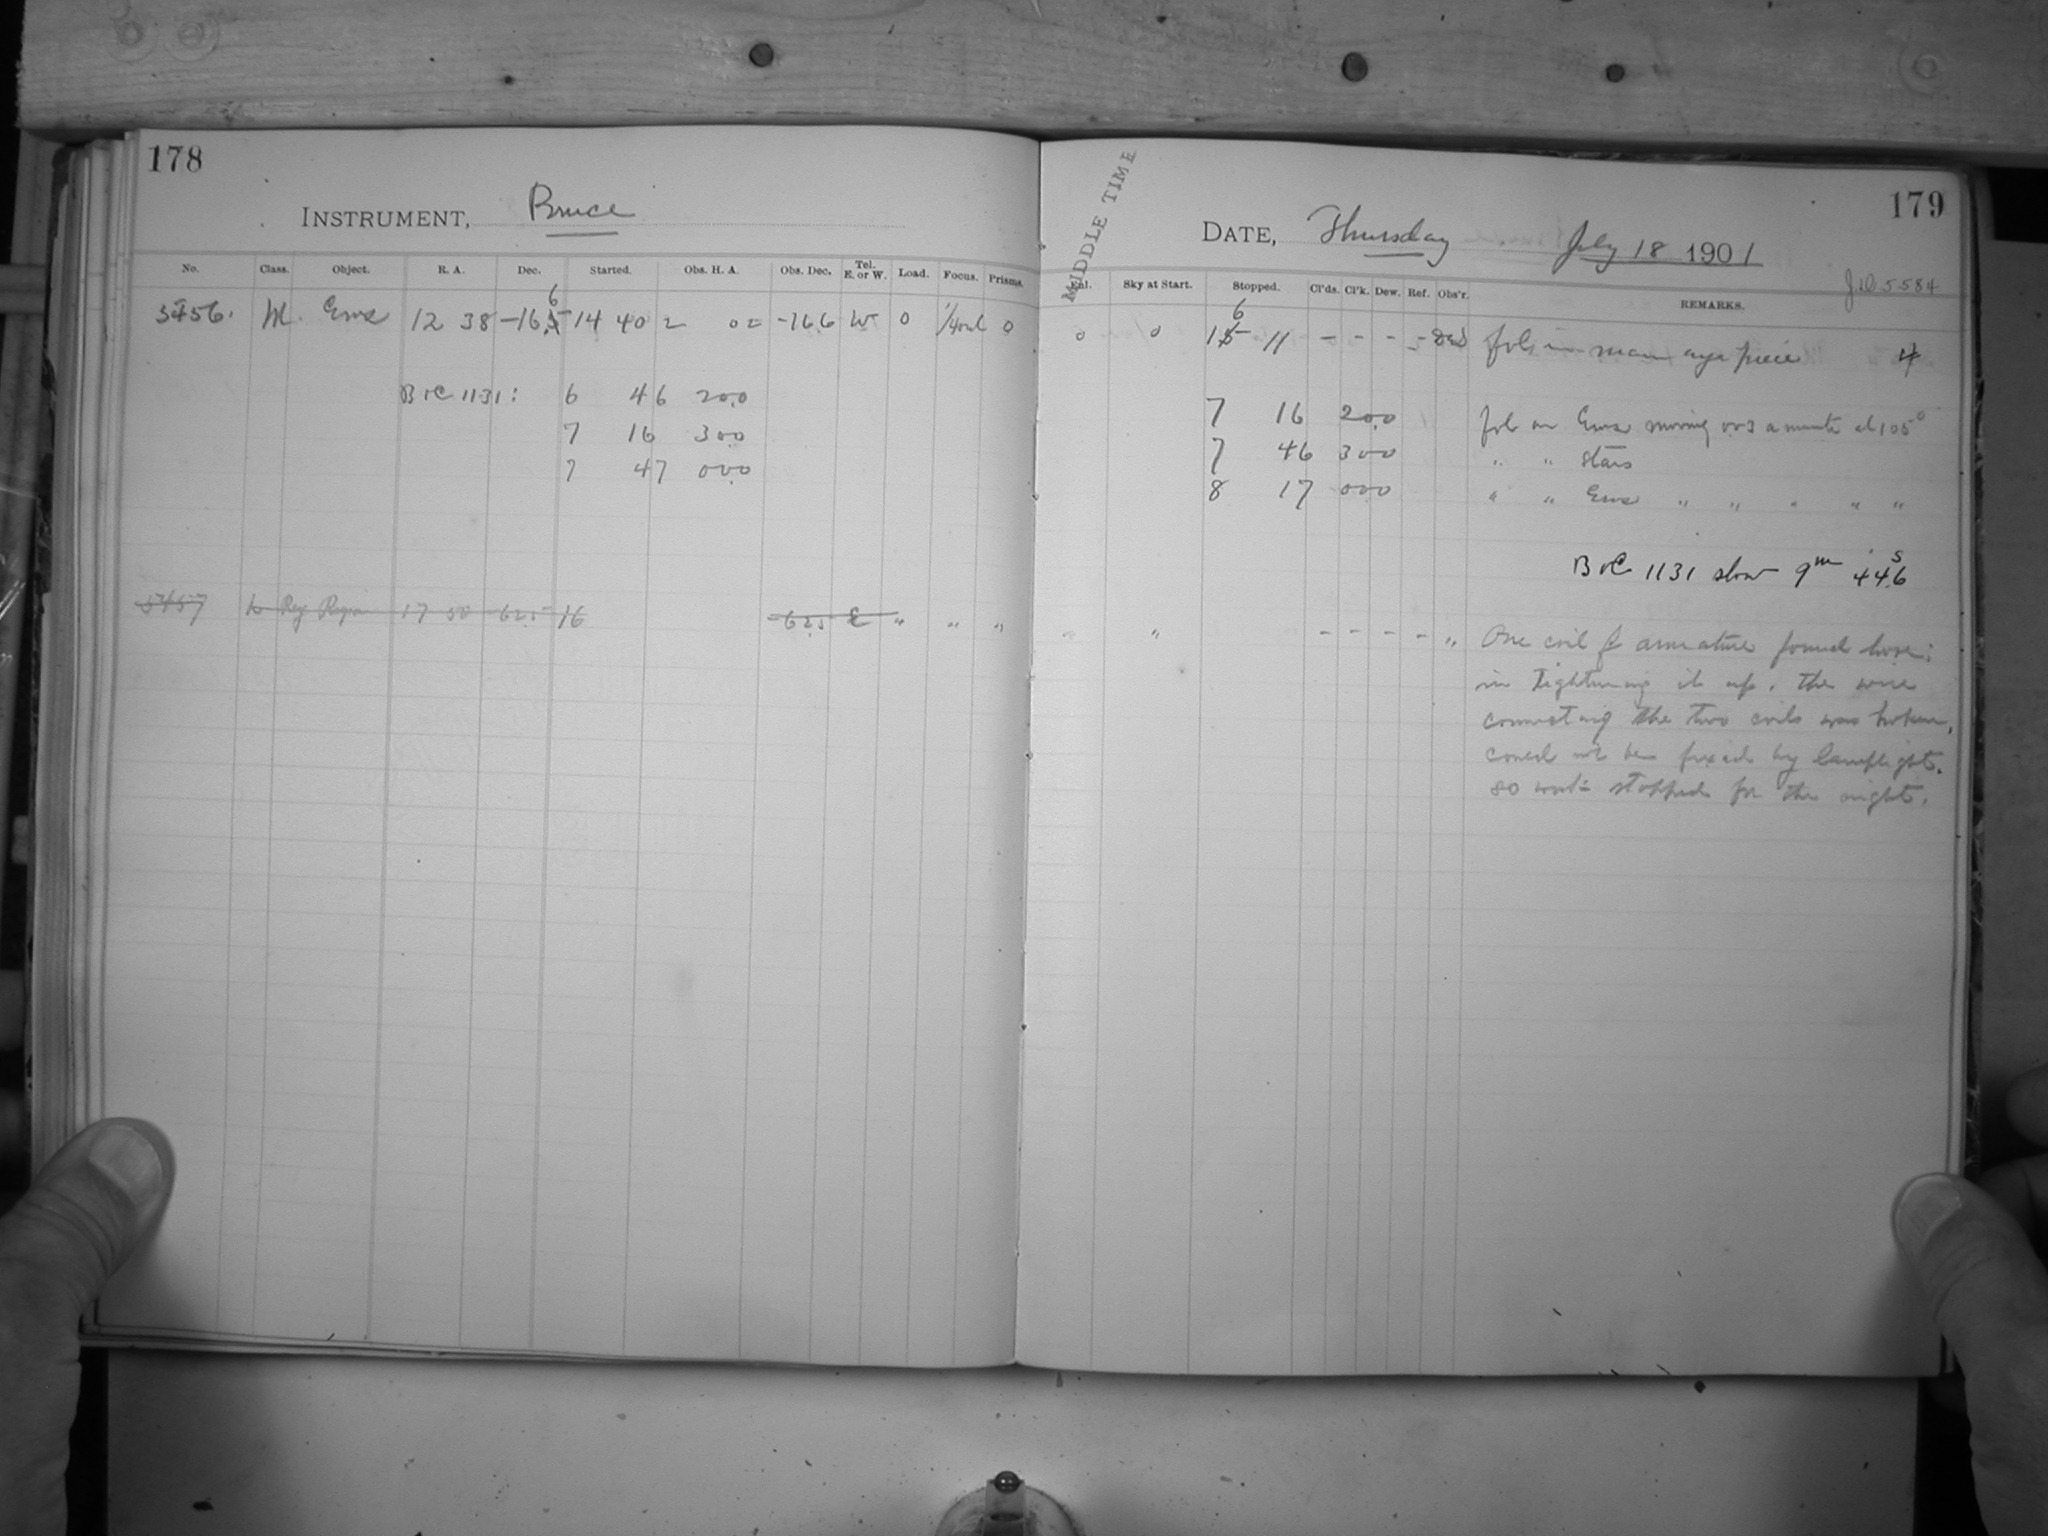 178
INSTRUMENT, Bruce
No. Class. Object. R. A. Dec. Started. Obs. H. A. Obs. Dec. Tel. E. or W. Load. Focus. Prisms.
5456. M Eros 12 38 -16.6 14 40 2 02 -16.6 W 0 0
B&C 1131: 6 46 20.0
7 16 30.0
7 47 00.0
5457 Reg Region 17 50 -62.5 16 -62.5 E " " "
179
MIDDLE TIME
DATE, Thursday July 18 1901
J.D. 5584
Enl. Sky at Start. Stopped. Cl'ds. Cl'k. Dew. Ref. Obs'r. REMARKS.
0 0 16 11 - - - - fol. in main eye piece 4
7 16 20.0 fol. on Eros moving 0.03 a minute at 105°
7 46 30.0 " " Stars
8 17 00.0 " " Eros " " " " "
B&C 1131 slow 9m 44.6s
" " - - - - " One coil of armature found loose:
in tightening it up, the wire
connecting the two coils was broken,
could not be fixed by lamplight.
so work stopped for the night.